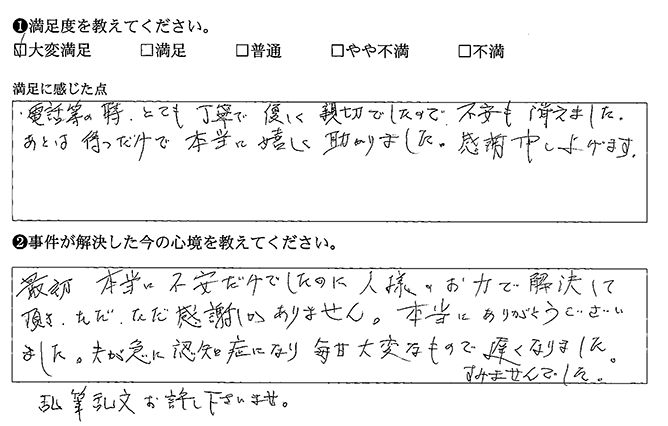 ❶満足度を教えてください。
☑大変満足 □満足 □普通 □やや不満 □不満
満足に感じた点
・電話等の時、とても丁寧で優しく親切でしたので、不安も消えました。
あとは待つだけで本当に嬉しく助かりました。感謝申し上げます。
❷事件が解決した今の心境を教えてください。
最初 本当に不安だけでしたのに人様のお力で解決して
頂き、ただ、ただ感謝しかありません。本当にありがとうござい
ました。夫が急に認知症になり毎日大変なもので遅くなりました。
すみませんでした。
乱筆乱文お許し下さいませ。